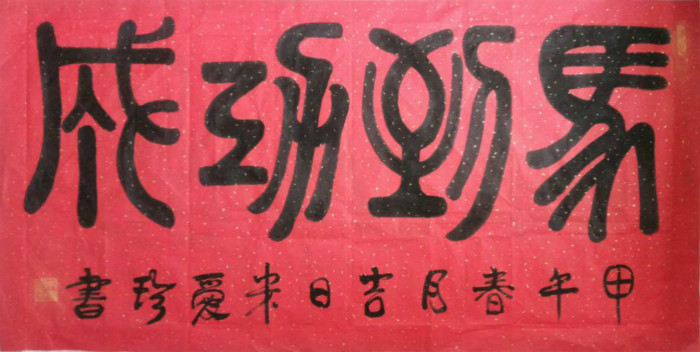 馬到功成
甲午春月吉日愛珍書